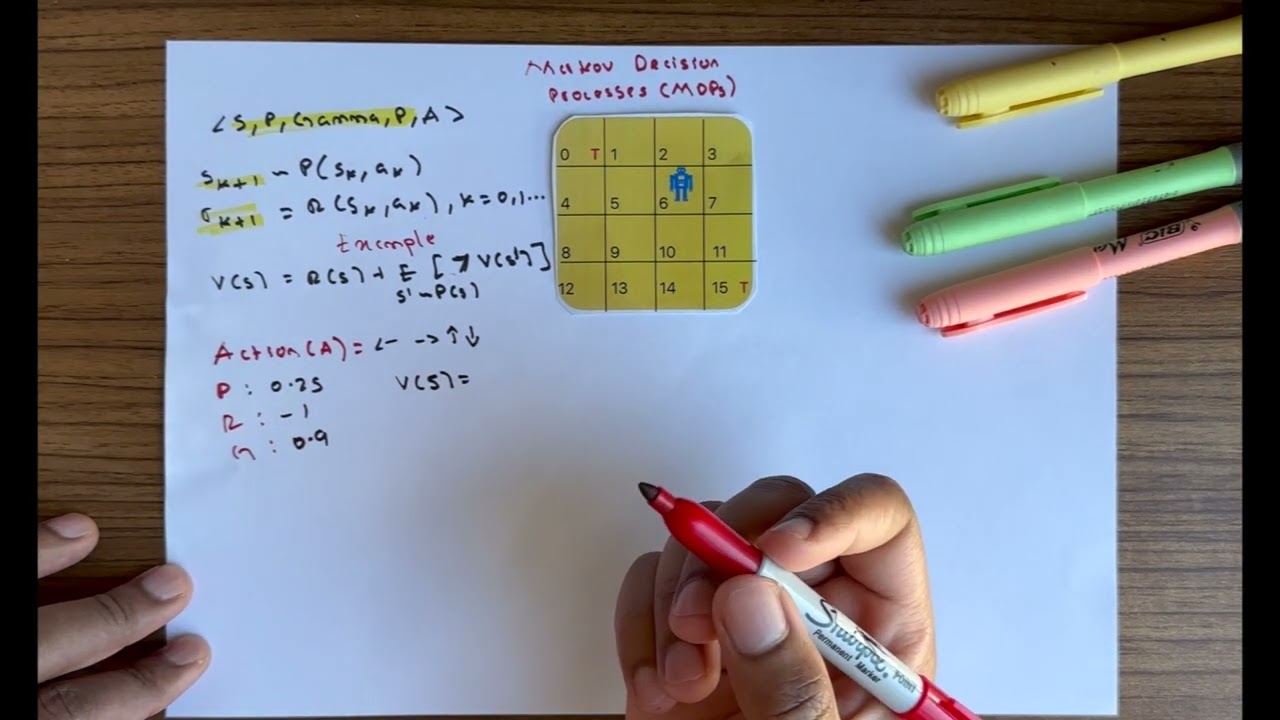 Markov Decision
Processes (MDPs)
< S, P, Gamma, P, A >
S_{k+1} ~ P(S_k, a_k)
r_{k+1} = R(S_k, a_k), k = 0, 1...
Example
V(s) = R(s) + E [γ V(s')]
s' ~ P(s)
Action(A) = ← → ↑ ↓
P : 0.25 V(S) =
R : -1
G : 0.9
0 T 1 2 3
4 5 6 7
8 9 10 11
12 13 14 15 T
BIC
Sharpie
Permanent Marker
POINT